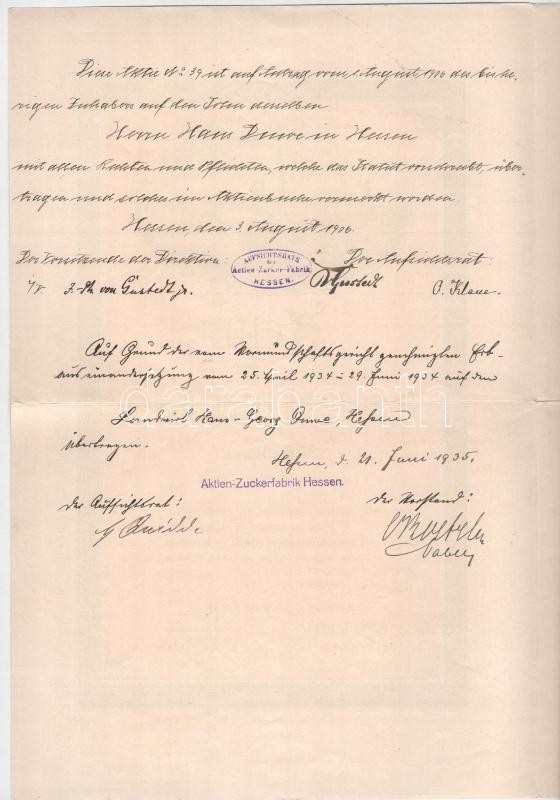 Diese Aktie No. 39 ist auf Antrag vom 1. August 1906 des bishe-
rigen Inhabers auf den Sohn desselben
Herrn Hans Duwe in Hessen
mit allen Rechten und Pflichten, welche das Statut vorschreibt, über-
tragen und solches im Aktienbuche vermerkt worden.
Hessen, den 3. August 1906.
Der Vorsitzende der Direktion: Der Aufsichtsrat:
AUFSICHTSRATH
der
Actien-Zucker-Fabrik
HESSEN.
i/V von Gustedt jr. Gustedt O. Klaue.
Auf Grund der vom Vormundschaftsgericht genehmigten Erb-
auseinandersetzung vom 25. April 1934 - 29. Juni 1934 auf den
Landwirt Hans-Georg Duwe, Hessen
übertragen.
Hessen, d. 21. Juni 1935.
Aktien-Zuckerfabrik Hessen.
der Aufsichtsrat: der Vorstand:
darabanth